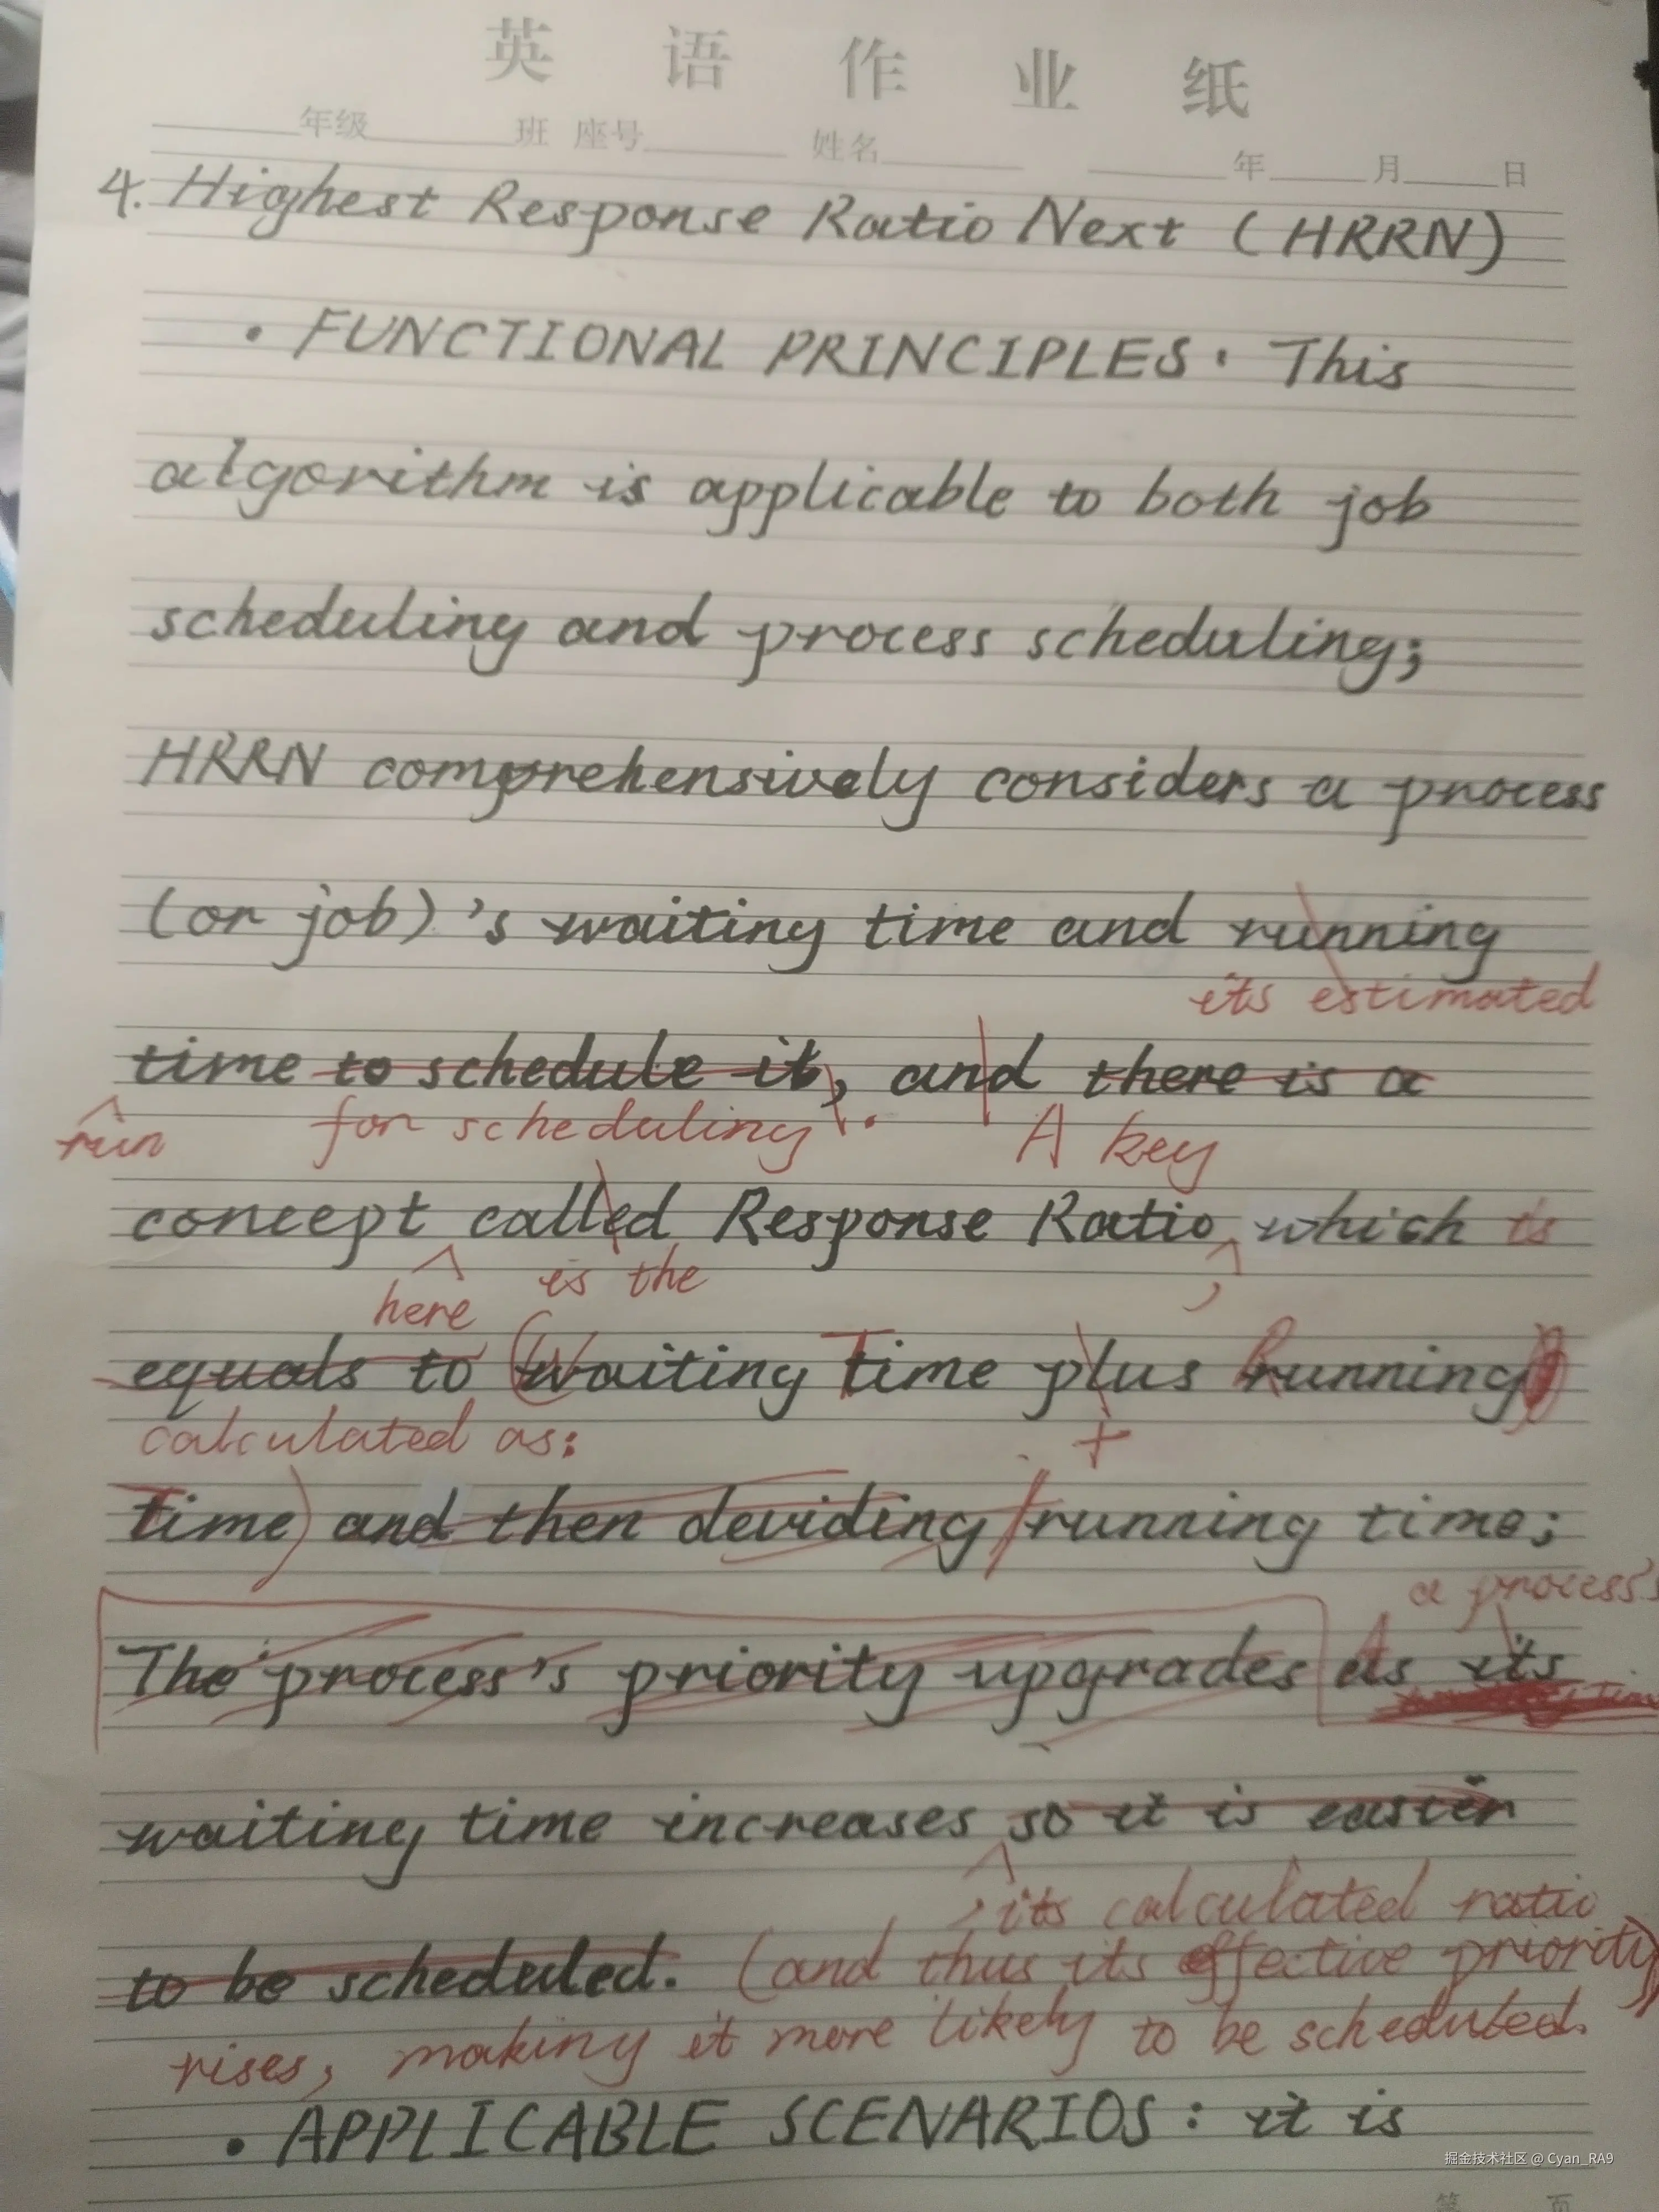 英语作业纸
年级 班 座号 姓名 年 月 日
4. Highest Response Ratio Next (HRRN)
• FUNCTIONAL PRINCIPLES: This
algorithm is applicable to both job
scheduling and process scheduling;
HRRN comprehensively considers a process
(or job)'s waiting time and running
its estimated
time to schedule it, and there is a
run for scheduling. A key
concept called Response Ratio which is
here is the ,
equals to (Waiting Time plus Running
calculated as: +
Time) and then deviding /running time;
a process's
The process's priority upgrades As its
waiting time increases so it is easier
, its calculated ratio
to be scheduled. (and thus its effective priority)
rises, making it more likely to be scheduled.
• APPLICABLE SCENARIOS: it is
掘金技术社区 @ Cyan_RA9
第 页